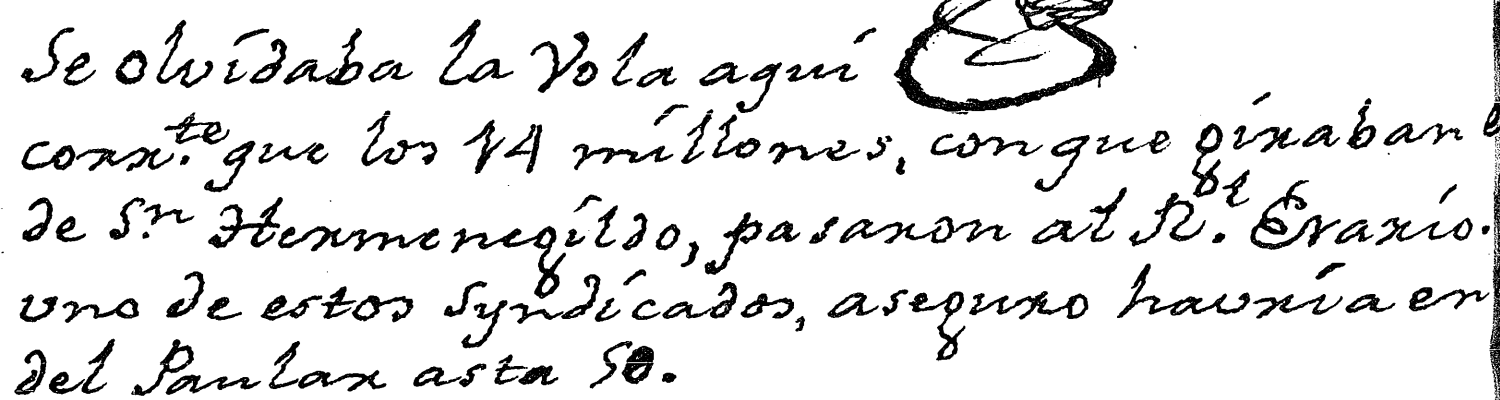 Se olvidaba la Vola aquí
corr.te que los 14 millones, con que giraban
de Sr.n Hermenegildo, pasaron al R.l Erario.
uno de estos Syndicados, aseguro havria en
del Paular asta 50.